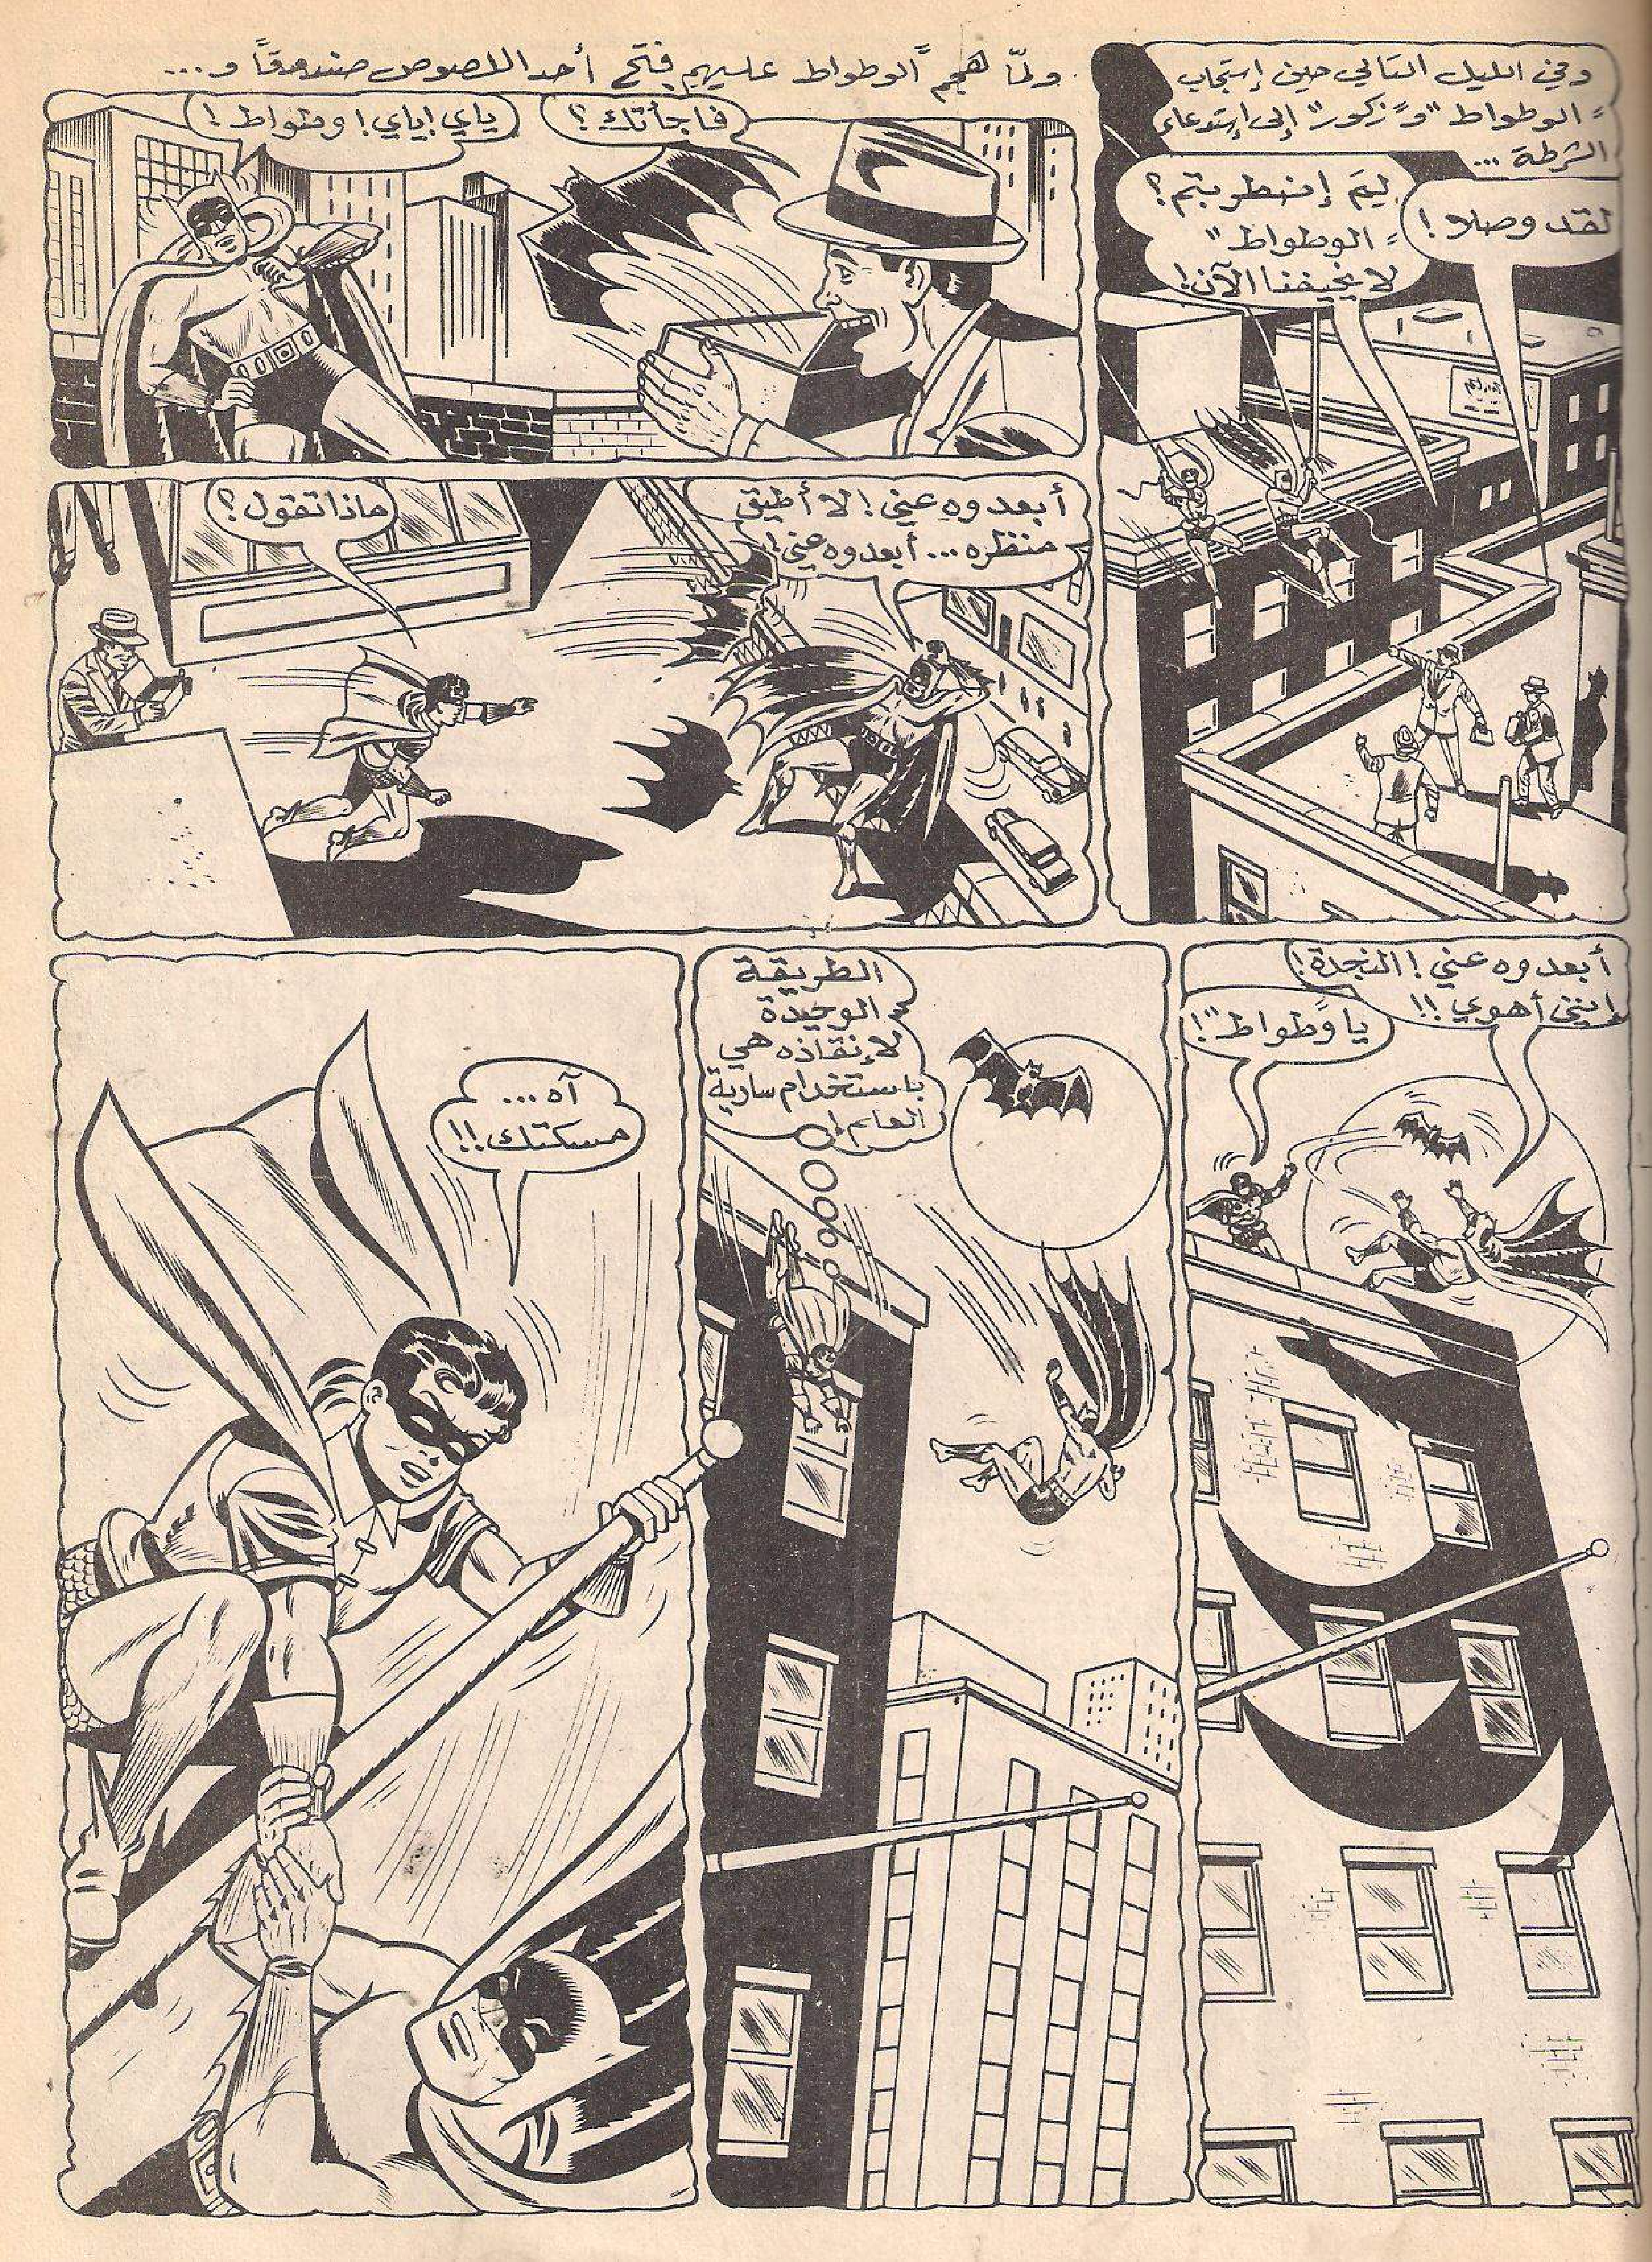 وفي الليل التالي حين إستجاب
"الوطواط" و"زكور" إلى إستدعاء
الشرطة ...
لقد وصلا!
لِمَ إضطربتم؟
"الوطواط"
لا يخيفنا الآن!
ولمّا هجم "الوطواط" عليهم فتح أحد اللصوص صندوقاً و...
فاجأتك؟
ياي! ياي! وطواط!
أبعدوه عني! لا أطيق
منظره ... أبعدوه عني!
ماذا تقول؟
أبعدوه عني! النجدة!
إنني أهوي!!
يا "وطواط"!
الطريقة
الوحيدة
لإنقاذه هي
باستخدام سارية
العلم!
آه ...
مسكتك!!